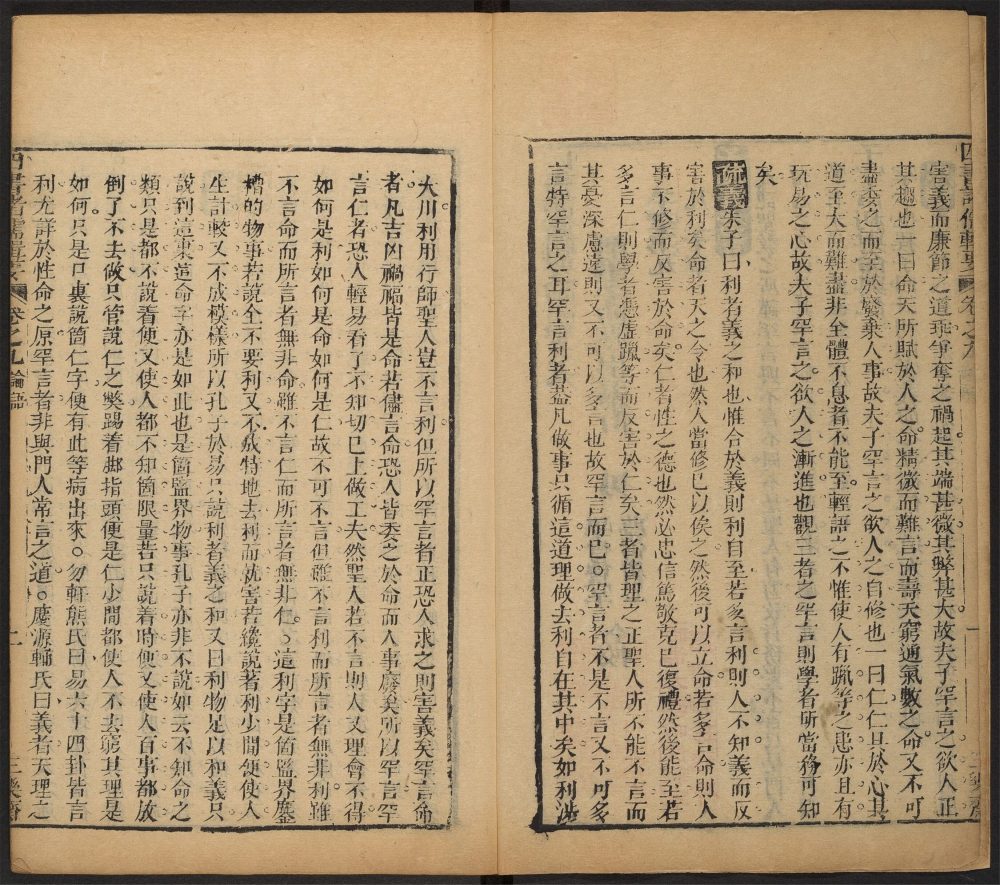 害義而廉節之道琢爭奪之禍起其端甚微其弊甚大故夫子罕言之欲人正
其趨也一曰命天所賦於人之命精微而難言而壽夭窮通氣數之命又不可
盡委之而至於廢棄人事故夫子罕言之欲人之自修也一曰仁仁具於心其
道至大而難盡非全體不息者不能至輕語之不惟使人有躐等之患亦且有
玩易之心故夫子罕言之欲人之漸進也觀三者之罕言則學者所當務可知
矣
疏義朱子曰利者義之和也惟合於義則利自至若多言利則人不知義而反
害於利矣命者天之令也然人當修己以俟之然後可以立命若多言命則人
事不修而反害於命矣仁者性之德也然必忠信篤敬克己復禮然後能至若
多言仁則學者憑虛躐等而反害於仁矣三者皆理之正聖人所不能不言而
其憂深慮遠則又不可以多言也故罕言而已○罕言者不是不言又不可多
言特罕言之耳罕言利者蓋凡做事只循這道理做去利自在其中矣如利涉
大川利用行師聖人豈不言利但所以罕言者正恐人求之則害義矣罕言命
者凡吉凶禍福皆是命若儘言命恐人皆委之於命而人事廢矣所以罕言罕
言仁者恐人輕易看了不知切己上做工夫然聖人若不言則人又理會不得
如何是利如何是命如何是仁故不可不言但雖不言利而所言者無非利雖
不言命而所言者無非命雖不言仁而所言者無非仁○這利字是箇監界鏖
糟的物事若說全不要利又不成特地去利而就害若纔說著利少間便使人
生計較又不成模樣所以孔子於易只說利者義之和又曰利物足以和義只
說到這裏這命字亦是如此也是箇監界物事孔子亦非不說如云不知命之
類只是都不說着便又使人都不知箇限量若只說着時便又使人百事都放
倒了不去做只管說仁之弊踢着脚指頭便是仁少間都使人不去窮其理是
如何只是口裏說箇仁字便有此等病出來○勿軒熊氏曰易六十四卦皆言
利尤詳於性命之原罕言者非與門人常言之道○慶源輔氏曰義者天理之
四書者儒輯要 卷之九 論語